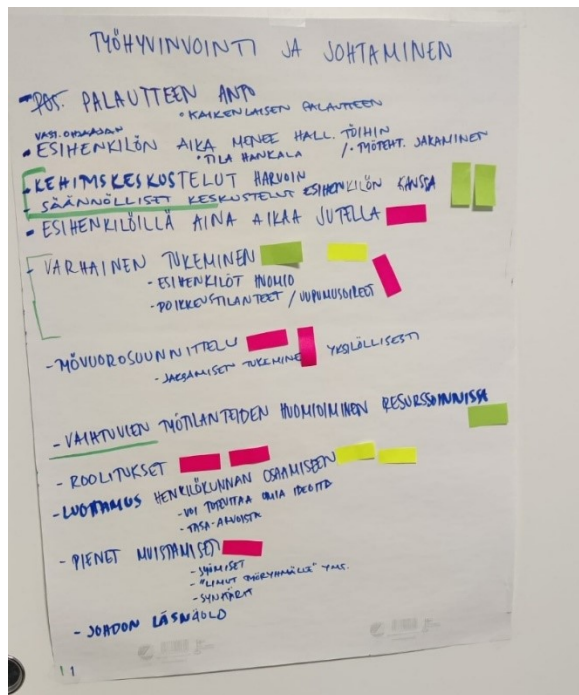 TYÖHYVINVOINTI JA JOHTAMINEN
- POS. PALAUTTEEN ANTO
• KAIKENLAISEN PALAUTTEEN
VAST. OHJAAJAN
• ESIHENKILÖN AIKA MENEE HALL. TÖIHIN
• TILA HANKALA /• TYÖTEHT. JAKAMINEN
- KEHITYSKESKUSTELUT HARVOIN
- SÄÄNNÖLLISET KESKUSTELUT ESIHENKILÖN KANSSA
- ESIHENKILÖILLÄ AINA AIKAA JUTELLA
- VARHAINEN TUKEMINEN
- ESIHENKILÖT HUOMIO
- POIKKEUSTILANTEET / UUPUMUSOIREET
- TYÖVUOROSUUNNITTELU
- JAKSAMISEN TUKEMINE YKSILÖLLISESTI
- VAIHTUVIEN TYÖTILANTEIDEN HUOMIOIMINEN RESURSSOINNISSA
- ROOLITUKSET
- LUOTTAMUS HENKILÖKUNNAN OSAAMISEEN
- VOI TOTEUTTAA OMIA IDEOITA
- TASA-ARVOISTA
- PIENET MUISTAMISET
- SYÖMISET
- "LIMUT TYÖRYHMÄLLE" YMS.
- SYNTTÄRIT
- JOHDON LÄSNÄOLO